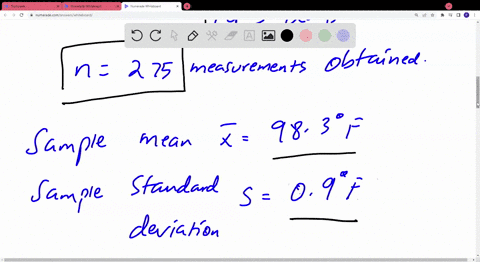 n = 275 measurements obtained.
Sample mean x̄ = 98.3°F
Sample Standard deviation S = 0.9°F